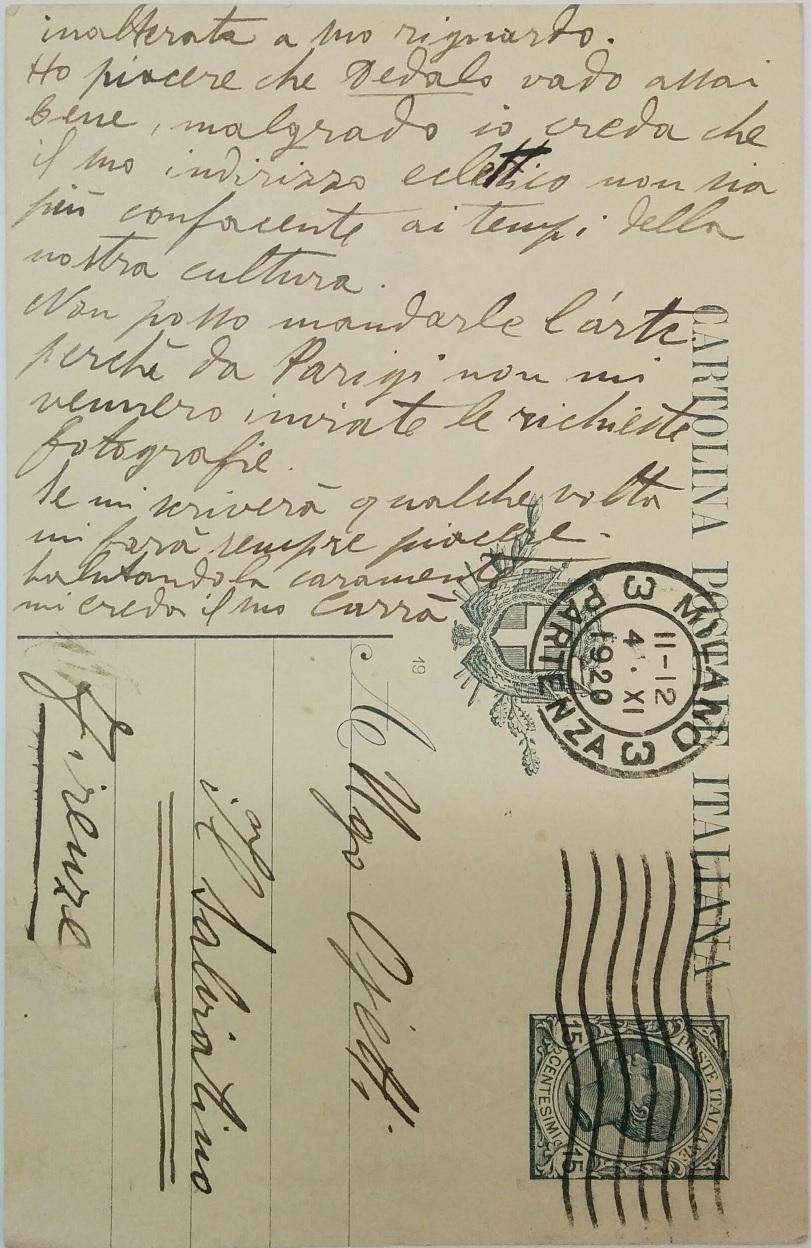 inalterata a suo riguardo.
Ho piacere che Dedalo vado assai
bene, malgrado io creda che
il suo indirizzo eclettico non sia
più confacente ai tempi della
nostra cultura.
Non posso mandarle l'arte
perchè da Parigi non mi
vennero inviate le richieste
fotografie.
Se mi scriverà qualche volta
mi farà sempre piacere.
Salutandola caramente
mi creda il suo Carrà
CARTOLINA POSTALE ITALIANA
19
MILANO 3 PARTENZA 3
11-12
4. XI
1920
POSTE ITALIANE
15 CENTESIMI 15
A Ugo Ojetti
al
il Salviatino
Firenze